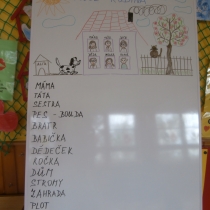 MÁMA
TÁTA
SESTRA
PES - BOUDA
BRATR
BABIČKA
DĚDEČEK
KOČKA
DŮM
STROMY
ZAHRADA
PLOT